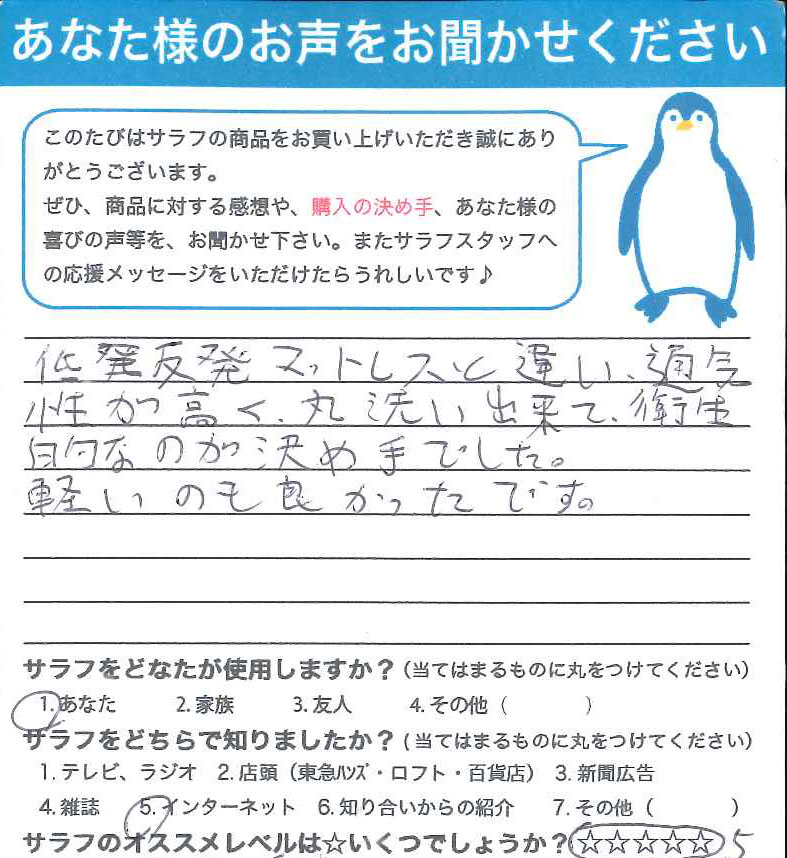 あなた様のお声をお聞かせください
このたびはサラフの商品をお買い上げいただき誠にあり
がとうございます。
ぜひ、商品に対する感想や、購入の決め手、あなた様の
喜びの声等を、お聞かせ下さい。またサラフスタッフへ
の応援メッセージをいただけたらうれしいです♪
低発反発マットレスと違い、通気
性が高く、丸洗い出来て、衛生
的なのが決め手でした。
軽いのも良かったです。
サラフをどなたが使用しますか？（当てはまるものに丸をつけてください）
1. あなた 2. 家族 3. 友人 4. その他（ ）
サラフをどちらで知りましたか？（当てはまるものに丸をつけてください）
1. テレビ、ラジオ 2. 店頭（東急ﾊﾝｽﾞ・ロフト・百貨店） 3. 新聞広告
4. 雑誌 5. インターネット 6. 知り合いからの紹介 7. その他（ ）
サラフのオススメレベルは☆いくつでしょうか？☆☆☆☆☆ 5